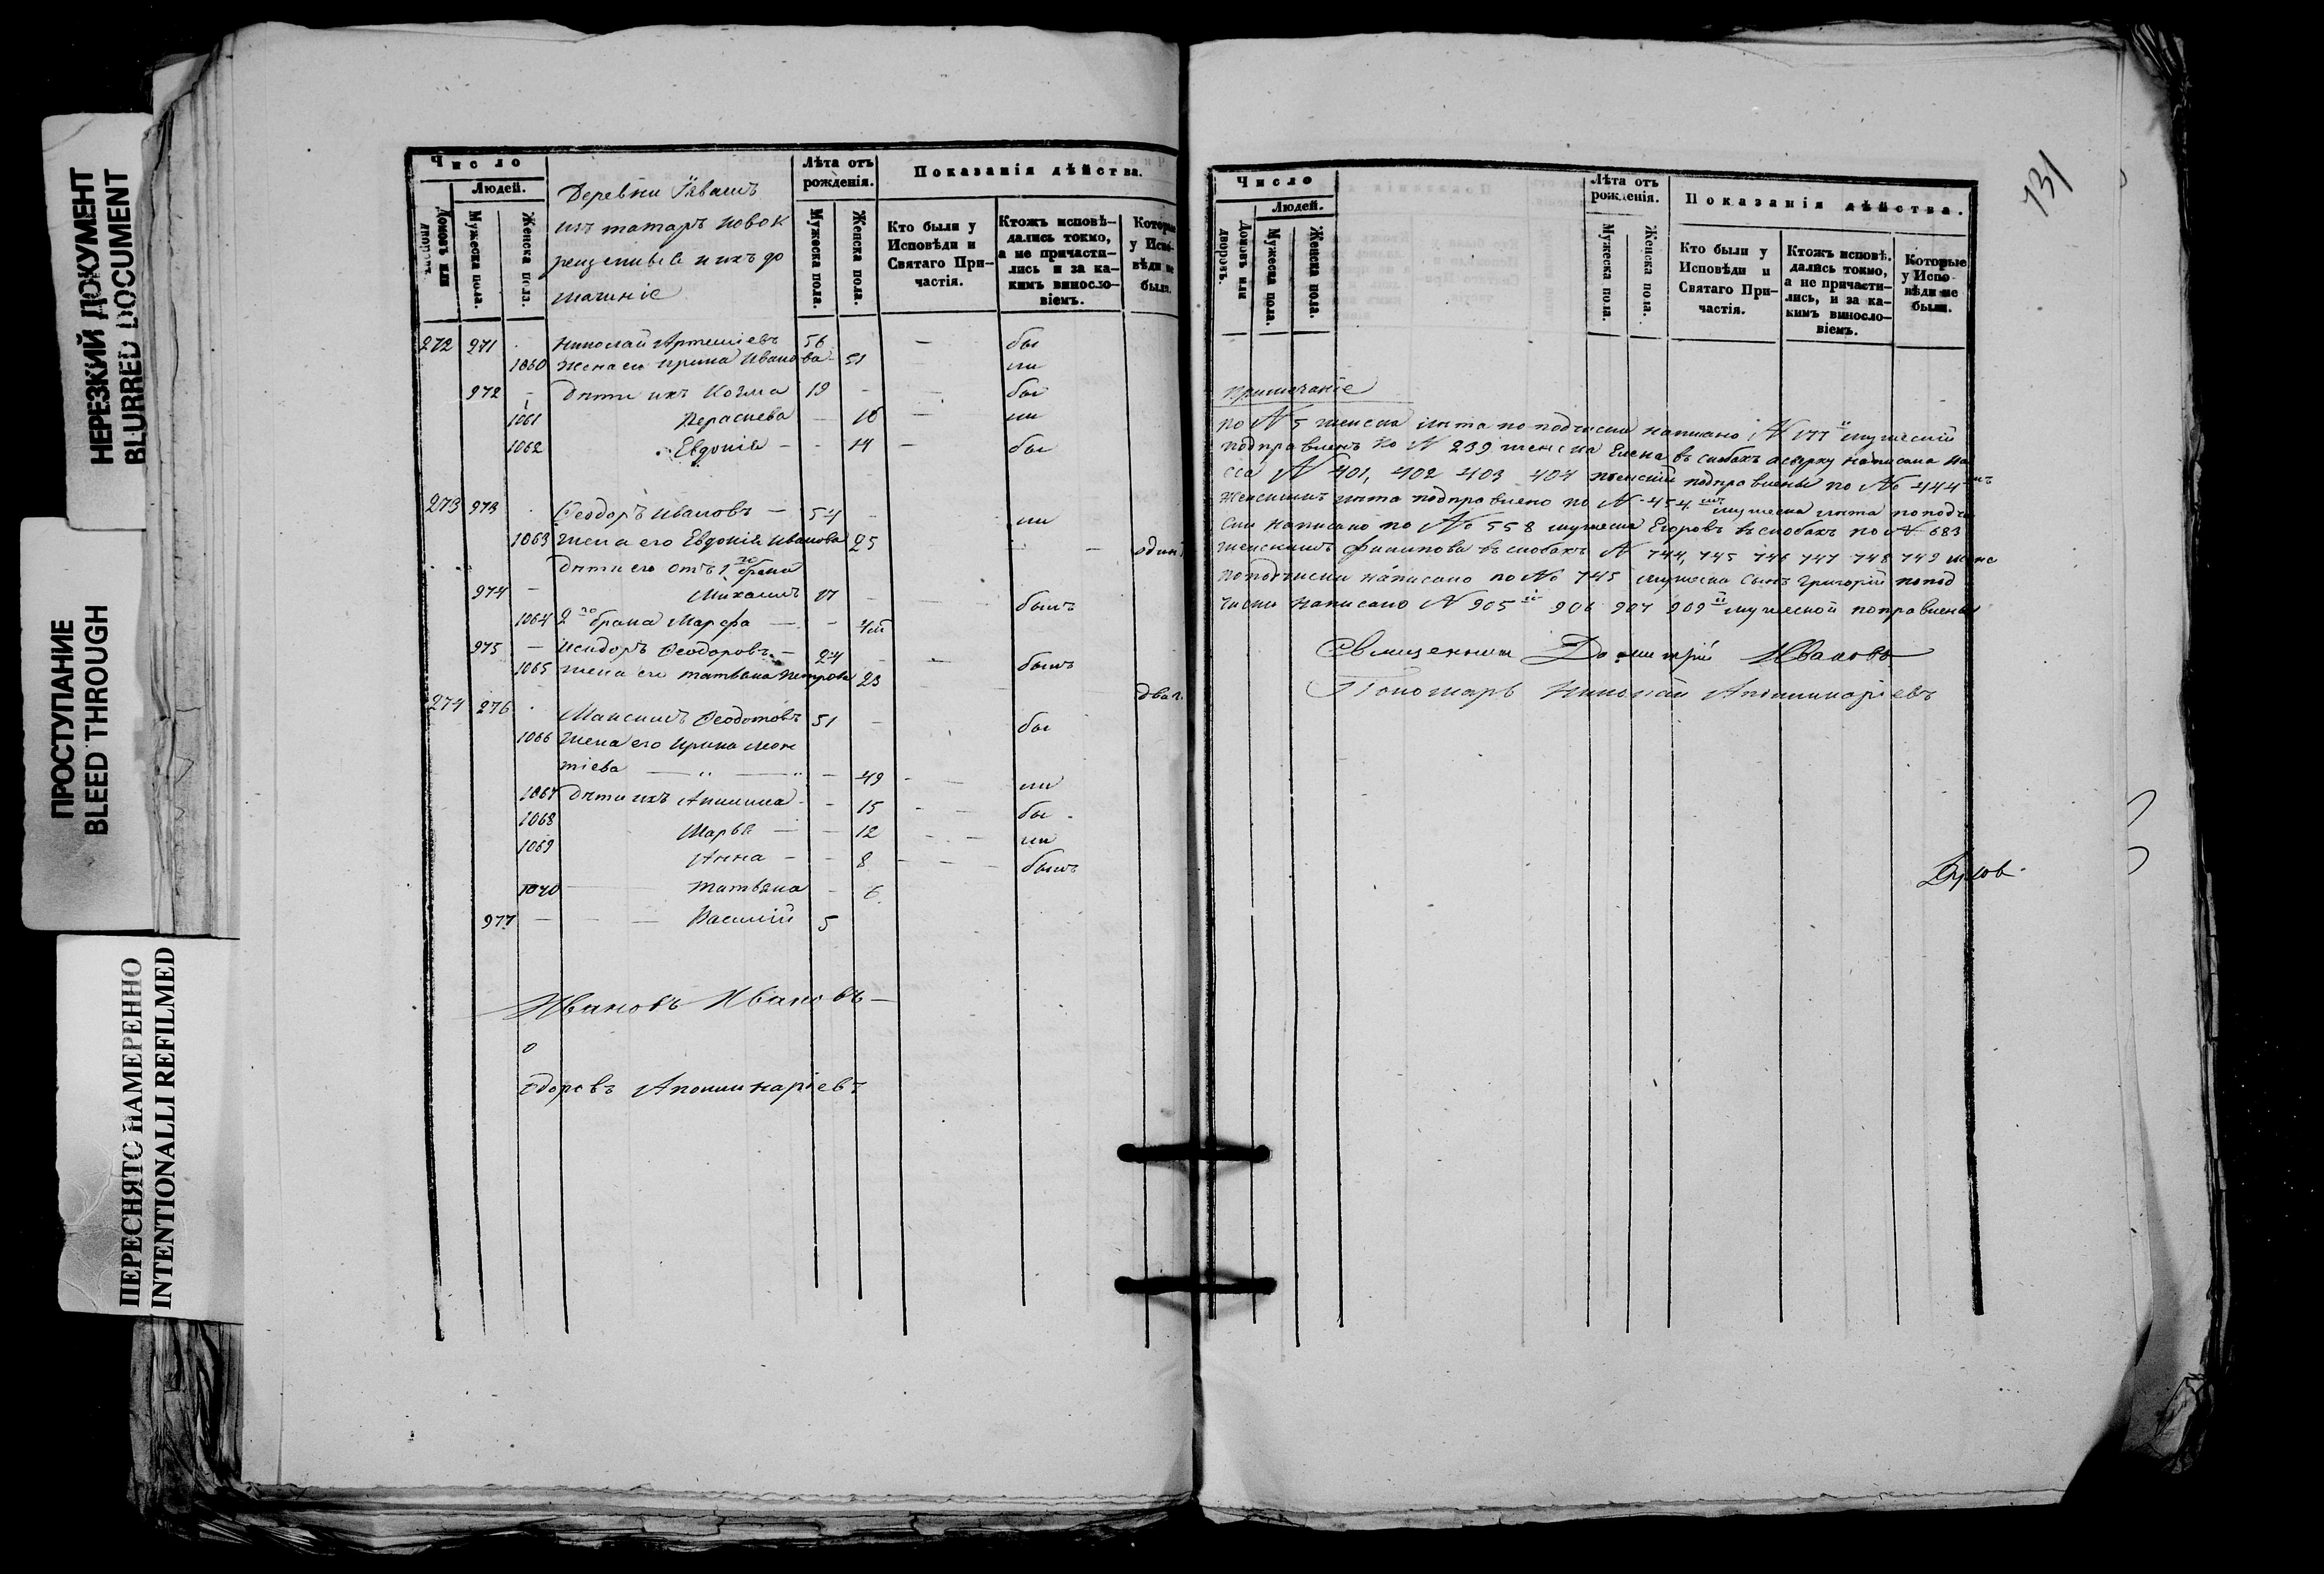 НЕРЕЗКИЙ ДОКУМЕНТ
BLURRED DOCUMENT
ПРОСТУПАНИЕ
BLEED THROUGH
ПЕРЕСНЯТО НАМЕРЕННО
INTENTIONALLI REFILMED
Число
Людей.
Домовъ или дворовъ.
Мужеска пола.
Женска пола.
Деревни
изъ татаръ новок
рещеныя и ихъ до
машніе
Лѣта отъ рожденія.
Мужеска пола.
Женска пола.
Показанія дѣйства.
Кто были у
Исповѣди и
Святаго При-
частія.
Ктожъ исповѣ-
дались токмо,
а не причасти-
лись и за ка-
кимъ винословіемъ.
Которые
у Испо-
вѣди не
были.
272 271 Николай Артеміевъ 56 бы
1060 Жена его Ирина Иванова 51 ли
972 Дѣти ихъ Козма 19 бы
1061 16 ли
1062 Евдокія 14 бы
273 973 Ѳеодоръ Ивановъ 54 ли
1063 Жена его Евдокія Иванова 25 одинъ
Дѣти его отъ 1го брака
974 Михаилъ 17 былъ
1064 2го брака Марѳа
975 Исидоръ Ѳеодоровъ 24 былъ
1065 Жена его Татьяна Петрова 23
274 276 Максимъ Ѳеодотовъ 51 бы
1066 Жена его Ирина Леон
тіева 49 ли
1067 Дѣти ихъ Акилина 15 бы
1068 Марья 12 ли
1069 Анна 8 былъ
1070 Татьяна 6
977 Василій 5
Ивановъ Ивановъ
о
одоровъ Аполинаріевъ
131
Число
Людей.
Домовъ или дворовъ.
Мужеска пола.
Женска пола.
Лѣта отъ
рожденія.
Мужеска пола.
Женска пола.
Показанія дѣйства.
Кто были у
Исповѣди и
Святаго При-
частія.
Ктожъ исповѣ-
дались токмо,
а не причасти-
лись, и за ка-
кимъ винословіемъ.
Которые
у Испо-
вѣди не
были.
Примечаніе
по N 5 женска лѣта по подчистки написано, N 177й мужеский
подправленъ по N 239 женска Елена въ скобахъ сверху написана
N 401, 402 403 404 женский подправлены по No 444
женскимъ лѣта подправлено по N 454 мужеска лѣта по подчи
стки написано по No 558 мужеска Егоровъ въ скобахъ по N 683
женскимъ Филипова въ скобахъ N 744, 745 746 747 748 749 женс
по подчистки написано по No 745 мужеска сынъ Григорій по под
чистки написано N 905й 906 907 909й мужеской поправлены
Священникъ Димитрій Ивановъ
Пономарь Николай Аполинаріевъ